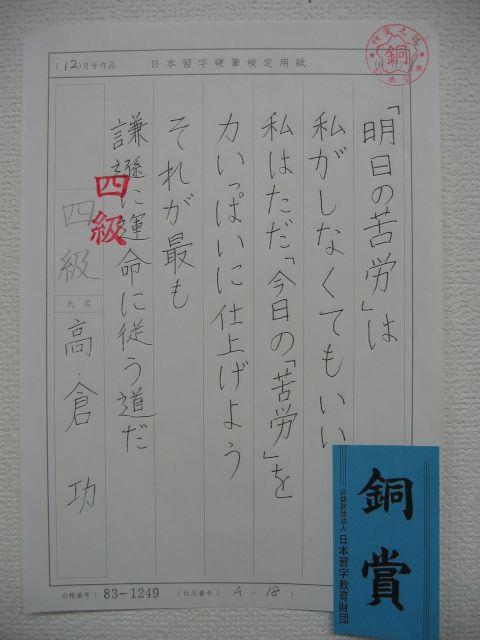 (12)月号作品 日本習字硬筆検定用紙
銅
「明日の苦労」は
私がしなくてもいい
私はただ「今日の「苦労」を
力いっぱいに仕上げよう
それが最も
謙遜に運命に従う道だ
四級
四級
氏名
高倉 功
台帳番号(83-1249)出品番号(A-18)
銅賞
公益財団法人 日本習字教育財団